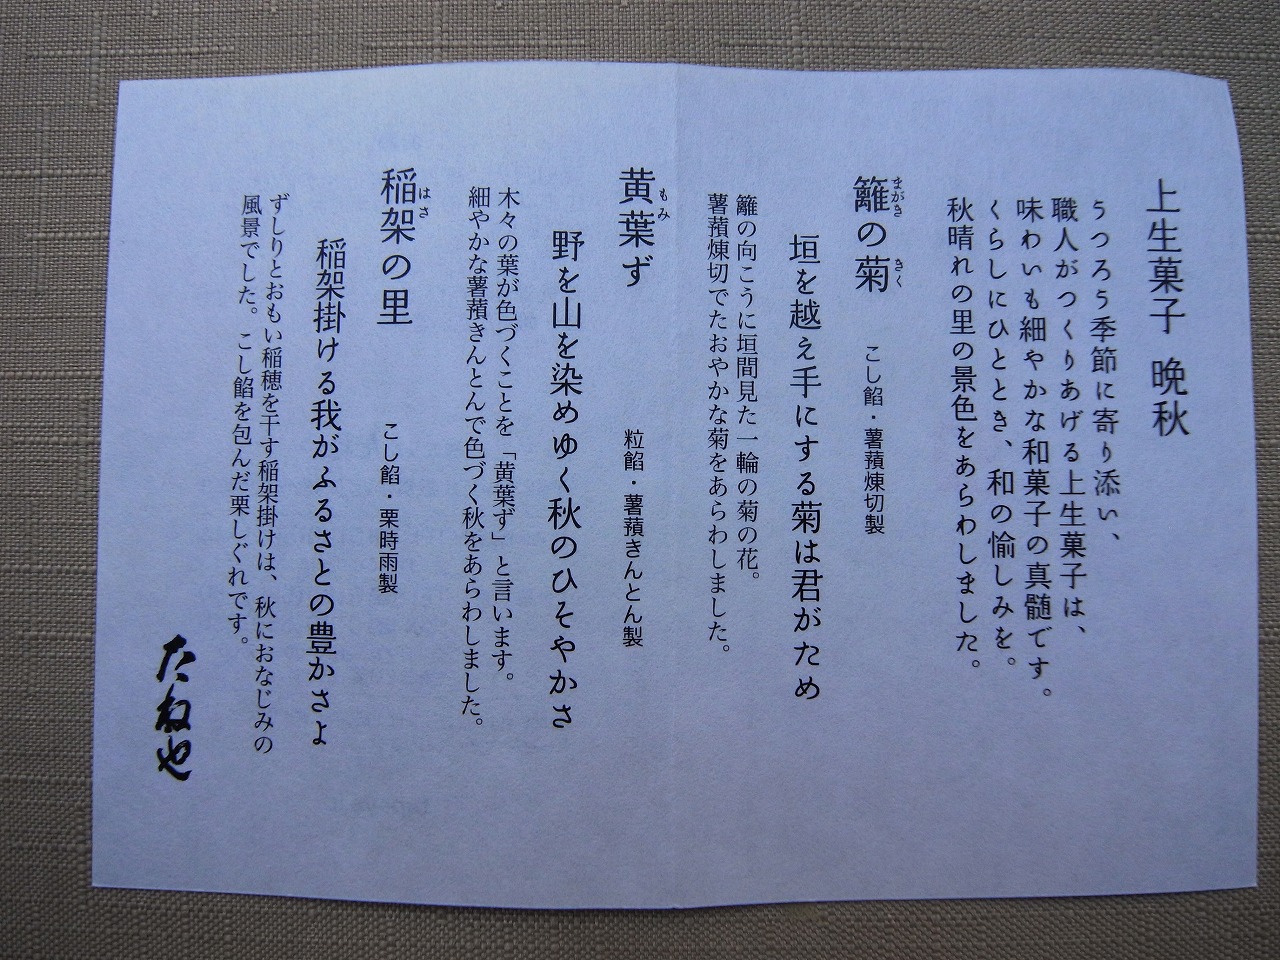 上生菓子 晩秋
うつろう季節に寄り添い、
職人がつくりあげる上生菓子は、
味わいも細やかな和菓子の真髄です。
くらしにひととき、和の愉しみを。
秋晴れの里の景色をあらわしました。
籬の菊 こし餡・薯蕷煉切製
まがき きく
垣を越え手にする菊は君がため
籬の向こうに垣間見た一輪の菊の花。
薯蕷煉切でたおやかな菊をあらわしました。
黄葉ず 粒餡・薯蕷きんとん製
もみ
野を山を染めゆく秋のひそやかさ
木々の葉が色づくことを「黄葉ず」と言います。
細やかな薯蕷きんとんで色づく秋をあらわしました。
稲架の里 こし餡・栗時雨製
はさ
稲架掛ける我がふるさとの豊かさよ
ずしりとおもい稲穂を干す稲架掛けは、秋におなじみの
風景でした。こし餡を包んだ栗しぐれです。
たねや